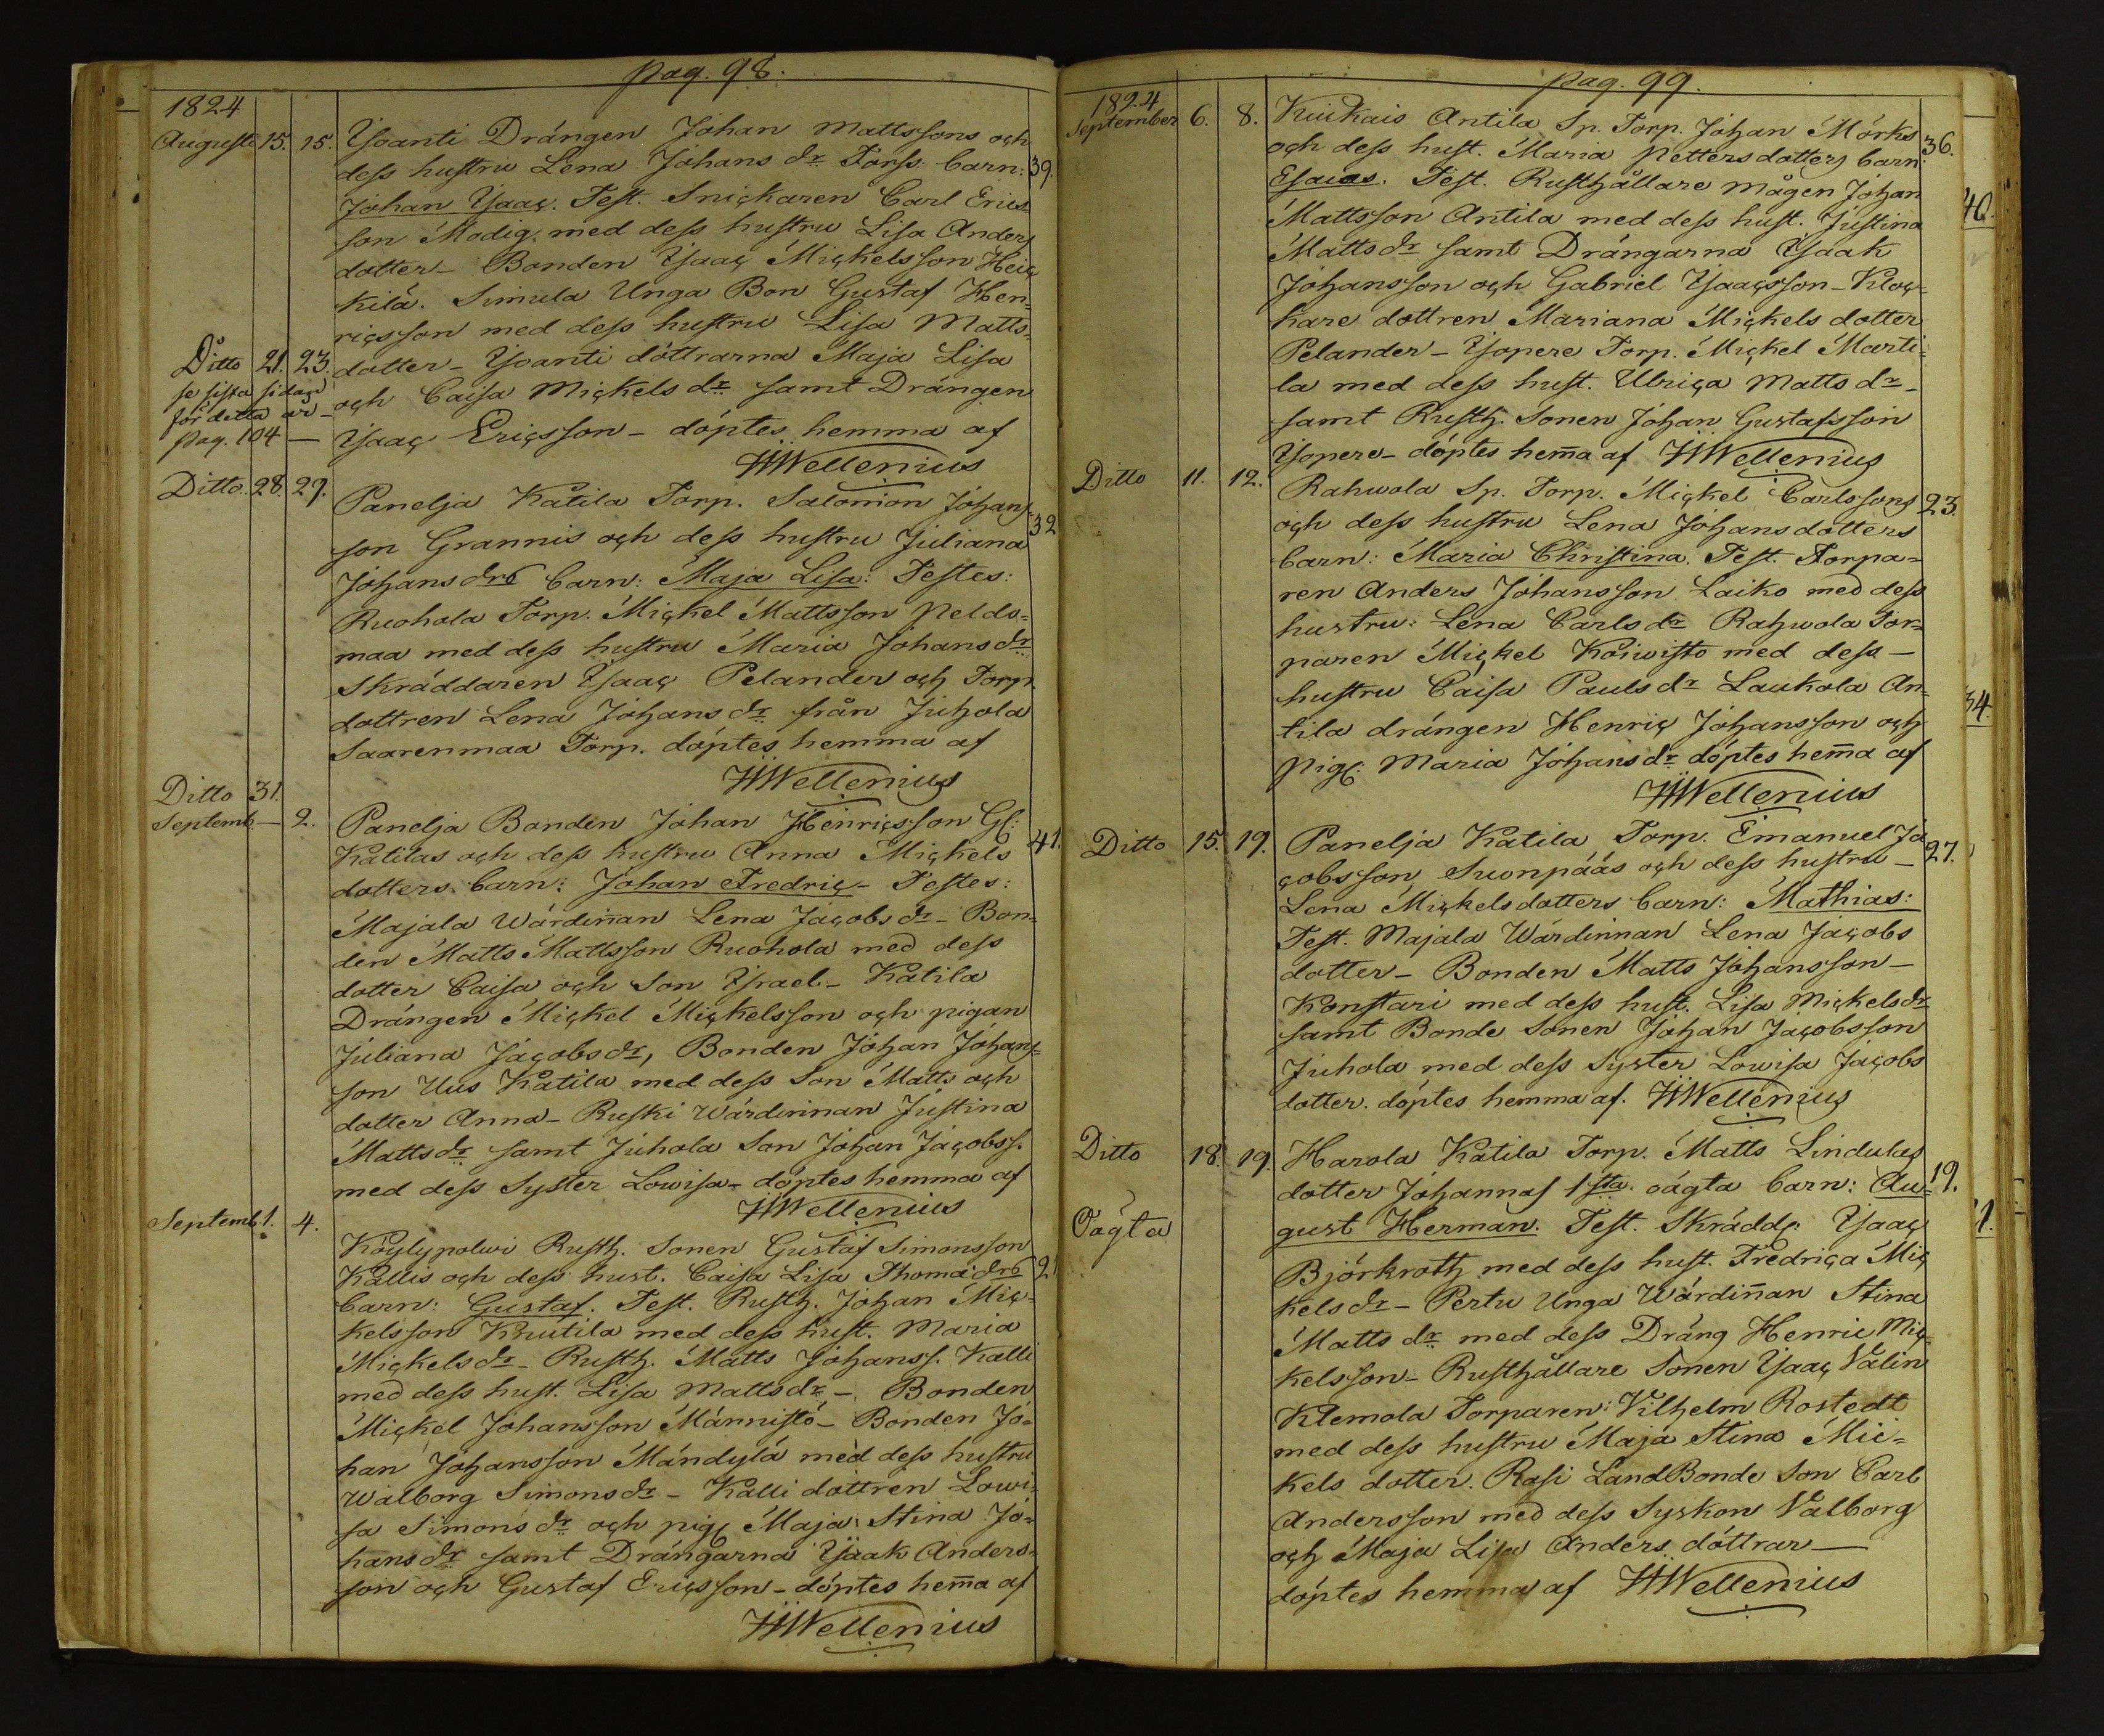 pag. 98.
1824
Augusti 15. 15. Ysoanti Drängen Johan Mattssons och
dess hustru Lena Johans dr Torss. barn: 39.
Johan Ysaac. Test. Snickaren Carl Erics
son Modig med dess hustru Lisa Anders
dotter - Bonden Ysaac Mickelsson Heic
kilä. Simula Unga Bon Gustaf Hen=
ricsson med dess hustru Lisa Matts=
Ditto 21. 23. dotter - Ysoanti döttrarna Maja Lisa
se sista sidan
och Caisa Mickels dr samt Drängen
för detta år -
pag. 104 — Ysaac Ericsson - döptes hemma af
HWellenius
Ditto. 28. 29.
Panelja Katila Torp. Salomon Johans= 32
son Grannis och dess hustru Juliana
Johans drs barn: Maja Lisa: Testes:
Ruohola Torp. Mickel Mattsson Peldo=
maa med dess hustru Maria Johans dr
Skräddaren Ysaac Pelander och Torp.
dottren Lena Johans dr från Juhola
Saarenmaa Torp. döptes hemma af
HWellenius
Ditto 31.
Septemb. — 2. Panelja Bonden Johan Henricsson Gl:
Katilas och dess hustru Anna Mickels 41.
dotters barn: Johan Fredric - Testes:
Majala Wärdiñan Lena Jacobs dr - Bon=
den Matts Mattsson Ruohola med dess
dotter Caisa och Son Ysrael - Katila
Drängen Mickel Mickelsson och pigan
Juliana Jacobs dr, Bonden Johan Johans=
son Uus Katila med dess Son Matts och
dotter Anna - Ruski Wärdinnan Justina
Matts dr samt Juhola Son Johan Jacobss.
med dess Syster Lowisa - döptes hemma af
HWellenius
Septemb. 1. 4.
Köylypolwi Rusth. Sonen Gustaf Simonsson
Kallis och dess hust. Caisa Lisa Thomæ drs 21
barn: Gustaf. Test. Rusth. Johan Mic=
kelsson Knutila med dess hust. Maria
Mickels dr - Rusth. Matts Johanss. Kalli
med dess hust. Lisa Matts dr - Bonden
Mickel Johansson Männistö - Bonden Jo=
han Johansson Mändylä med dess hustru
Walborg Simons dr - Kalli dottren Lowi=
sa Simons dr och pig: Maja Stina Jo=
hans dr samt Drängarna Ysaak Anders=
son och Gustaf Ericsson - döptes hem̃a af
HWellenius
pag. 99.
1824
September 6. 8. Kiukais Antila Sp. Torp. Johan Mörks 36.
och dess hust. Maria Petters dotters barn:
Esaias. Test. Rusthållare mågen Johan
Mattsson Antila med dess hust. Justina 40.
Matts dr samt Drängarna Ysaak
Johansson och Gabriel Ysaacsson - Kloc=
kare dottren Mariana Mickels dotter
Pelander - Yspere Torp. Mickel Marti=
la med dess hust. Ulrica Matts dr -
samt Rusth. Sonen Johan Gustafsson
Yspere - döptes hem̃a af HWellenius
Ditto 11. 12.
Rahwola Sp. Torp. Mickel Carlssons 23.
och dess hustru Lena Johans dotters
barn: Maria Christina. Test. Torpa=
ren Anders Johansson Laiko med dess
hustru: Lena Carls dr Rahwola Tor=
paren Mickel Koiwisto med dess —
hustru Caisa Pauls dr Laukola An= 34.
tila drängen Henric Johansson och
pig: Maria Johans dr döptes hem̃a af
HWellenius
Ditto 15. 19. Panelja Katila Torp. Emanuel Ja 27.
cobsson Suonpääs och dess hustru —
Lena Mickels dotters barn: Mathias:
Test. Majala Wärdinnan Lena Jacobs
dotter - Bonden Matts Johansson —
Konstari med dess hust. Lisa Mickels dr
samt Bonde Sonen Johan Jacobsson
Juhola med dess Syster Lowisa Jacobs
dotter. döptes hemma af. HWellenius
Ditto 18. 19. Harola Katila Torp. Matts Lindulas
dotter Johannas 1sta. oägta barn: Au= 19.
Oägta
gust Herman. Test. Skrädd: Ysaac 1.
Björkroth med dess hust. Fredrica Mic
kels dr - Pertu Unga Wärdiñan Stina
Matts dr med dess Dräng Henric Mic=
kelsson - Rusthållare Sonen Ysaac Valin
Klemola Torparen: Vilhelm Rostedt
med dess hustru Maja Stina Mic=
kels dotter. Rasi LandBonde Son Carl
Andersson med dess Syskon Valborg
och Maja Lisa Anders döttrar —
döptes hemma af HWellenius